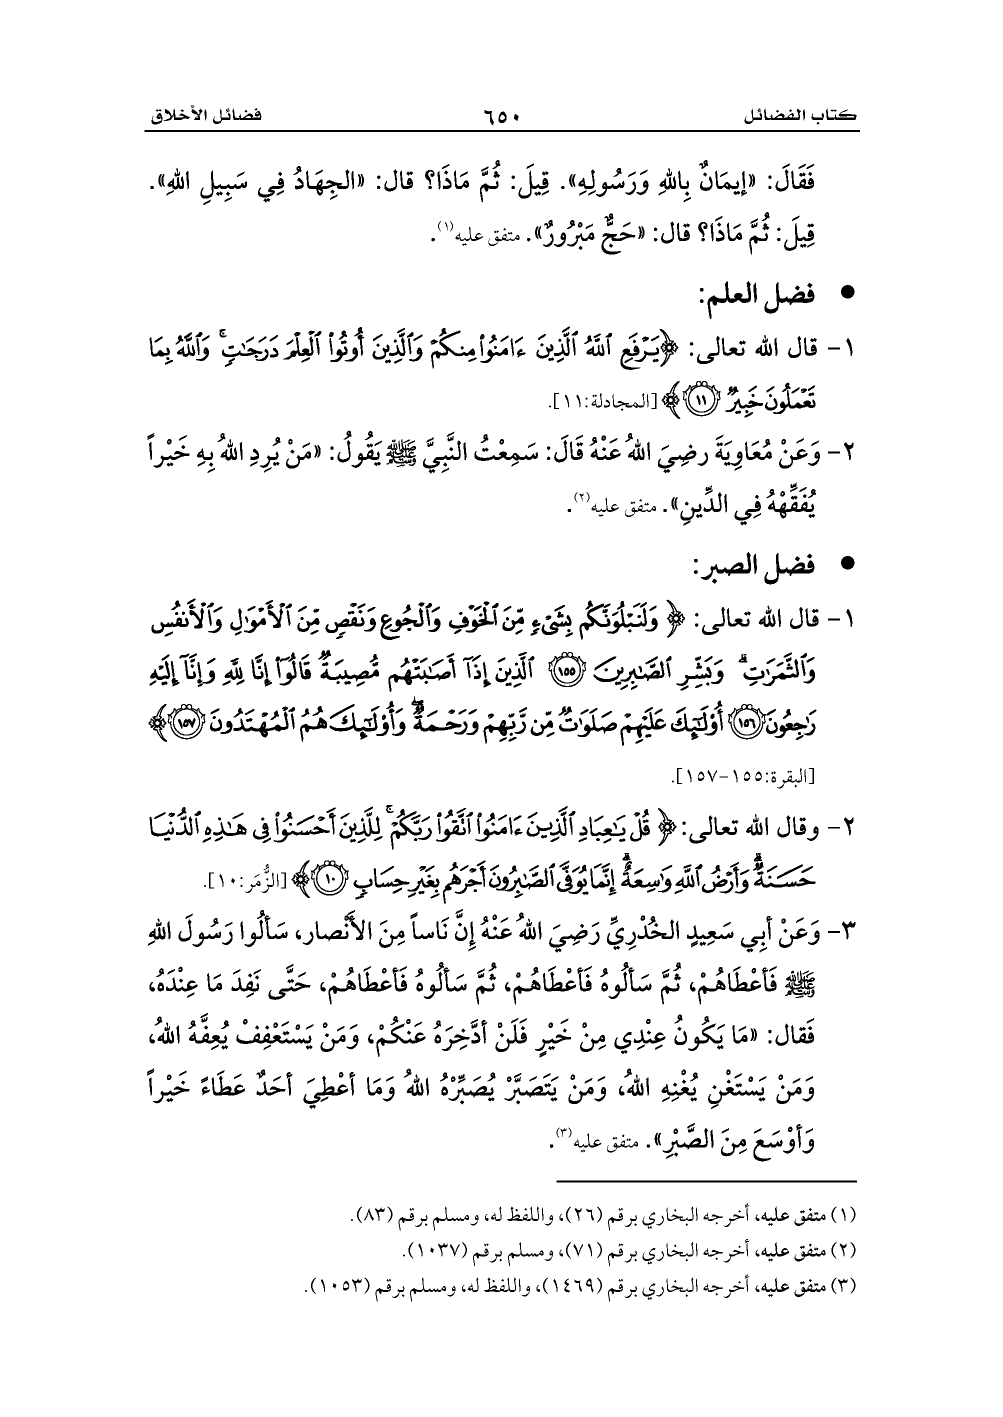 كتاب الفضائل ٦٥٠ فضائل الأخلاق
فَقَالَ: «إيمَانٌ بِاللهِ وَرَسُولِهِ». قِيلَ: ثُمَّ مَاذَا؟ قال: «الجِهَادُ فِي سَبِيلِ اللهِ».
قِيلَ: ثُمَّ مَاذَا؟ قال: «حَجٌّ مَبْرُورٌ». متفق عليه(١).
● فضل العلم:
١- قال الله تعالى: ﴿يَرْفَعِ ٱللَّهُ ٱلَّذِينَ ءَامَنُوا۟ مِنكُمْ وَٱلَّذِينَ أُوتُوا۟ ٱلْعِلْمَ دَرَجَـٰتٍ ۚ وَٱللَّهُ بِمَا
تَعْمَلُونَ خَبِيرٌ ١١﴾ [المجادلة:١١].
٢- وَعَنْ مُعَاوِيَةَ رضِيَ اللهُ عَنْهُ قَالَ: سَمِعْتُ النَّبِيَّ ﷺ يَقُولُ: «مَنْ يُرِدِ اللهُ بِهِ خَيْراً
يُفَقِّهْهُ فِي الدِّينِ». متفق عليه(٢).
● فضل الصبر:
١- قال الله تعالى: ﴿وَلَنَبْلُوَنَّكُم بِشَىْءٍ مِّنَ ٱلْخَوْفِ وَٱلْجُوعِ وَنَقْصٍ مِّنَ ٱلْأَمْوَٰلِ وَٱلْأَنفُسِ
وَٱلثَّمَرَٰتِ ۗ وَبَشِّرِ ٱلصَّـٰبِرِينَ ١٥٥ ٱلَّذِينَ إِذَآ أَصَـٰبَتْهُم مُّصِيبَةٌ قَالُوٓا۟ إِنَّا لِلَّهِ وَإِنَّآ إِلَيْهِ
رَٰجِعُونَ ١٥٦ أُو۟لَـٰٓئِكَ عَلَيْهِمْ صَلَوَٰتٌ مِّن رَّبِّهِمْ وَرَحْمَةٌ ۖ وَأُو۟لَـٰٓئِكَ هُمُ ٱلْمُهْتَدُونَ ١٥٧﴾
[البقرة:١٥٥-١٥٧].
٢- وقال الله تعالى: ﴿قُلْ يَـٰعِبَادِ ٱلَّذِينَ ءَامَنُوا۟ ٱتَّقُوا۟ رَبَّكُمْ ۚ لِلَّذِينَ أَحْسَنُوا۟ فِى هَـٰذِهِ ٱلدُّنْيَا
حَسَنَةٌ ۗ وَأَرْضُ ٱللَّهِ وَٰسِعَةٌ ۗ إِنَّمَا يُوَفَّى ٱلصَّـٰبِرُونَ أَجْرَهُم بِغَيْرِ حِسَابٍ ١٠﴾ [الزُّمَر:١٠].
٣- وَعَنْ أبِي سَعِيدٍ الخُدْرِيِّ رَضِيَ اللهُ عَنْهُ إنَّ نَاساً مِنَ الأَنْصار، سَألُوا رَسُولَ اللهِ
ﷺ فَأعْطَاهُمْ، ثُمَّ سَألُوهُ فَأعْطَاهُمْ، ثُمَّ سَألُوهُ فَأعْطَاهُمْ، حَتَّى نَفِدَ مَا عِنْدَهُ،
فَقال: «مَا يَكُونُ عِنْدِي مِنْ خَيْرٍ فَلَنْ أدَّخِرَهُ عَنْكُمْ، وَمَنْ يَسْتَعْفِفْ يُعِفَّهُ اللهُ،
وَمَنْ يَسْتَغْنِ يُغْنِهِ اللهُ، وَمَنْ يَتَصَبَّرْ يُصَبِّرْهُ اللهُ وَمَا أعْطِيَ أحَدٌ عَطَاءً خَيْراً
وَأوْسَعَ مِنَ الصَّبْرِ». متفق عليه(٣).
(١) متفق عليه، أخرجه البخاري برقم (٢٦)، واللفظ له، ومسلم برقم (٨٣).
(٢) متفق عليه، أخرجه البخاري برقم (٧١)، ومسلم برقم (١٠٣٧).
(٣) متفق عليه، أخرجه البخاري برقم (١٤٦٩)، واللفظ له، ومسلم برقم (١٠٥٣).